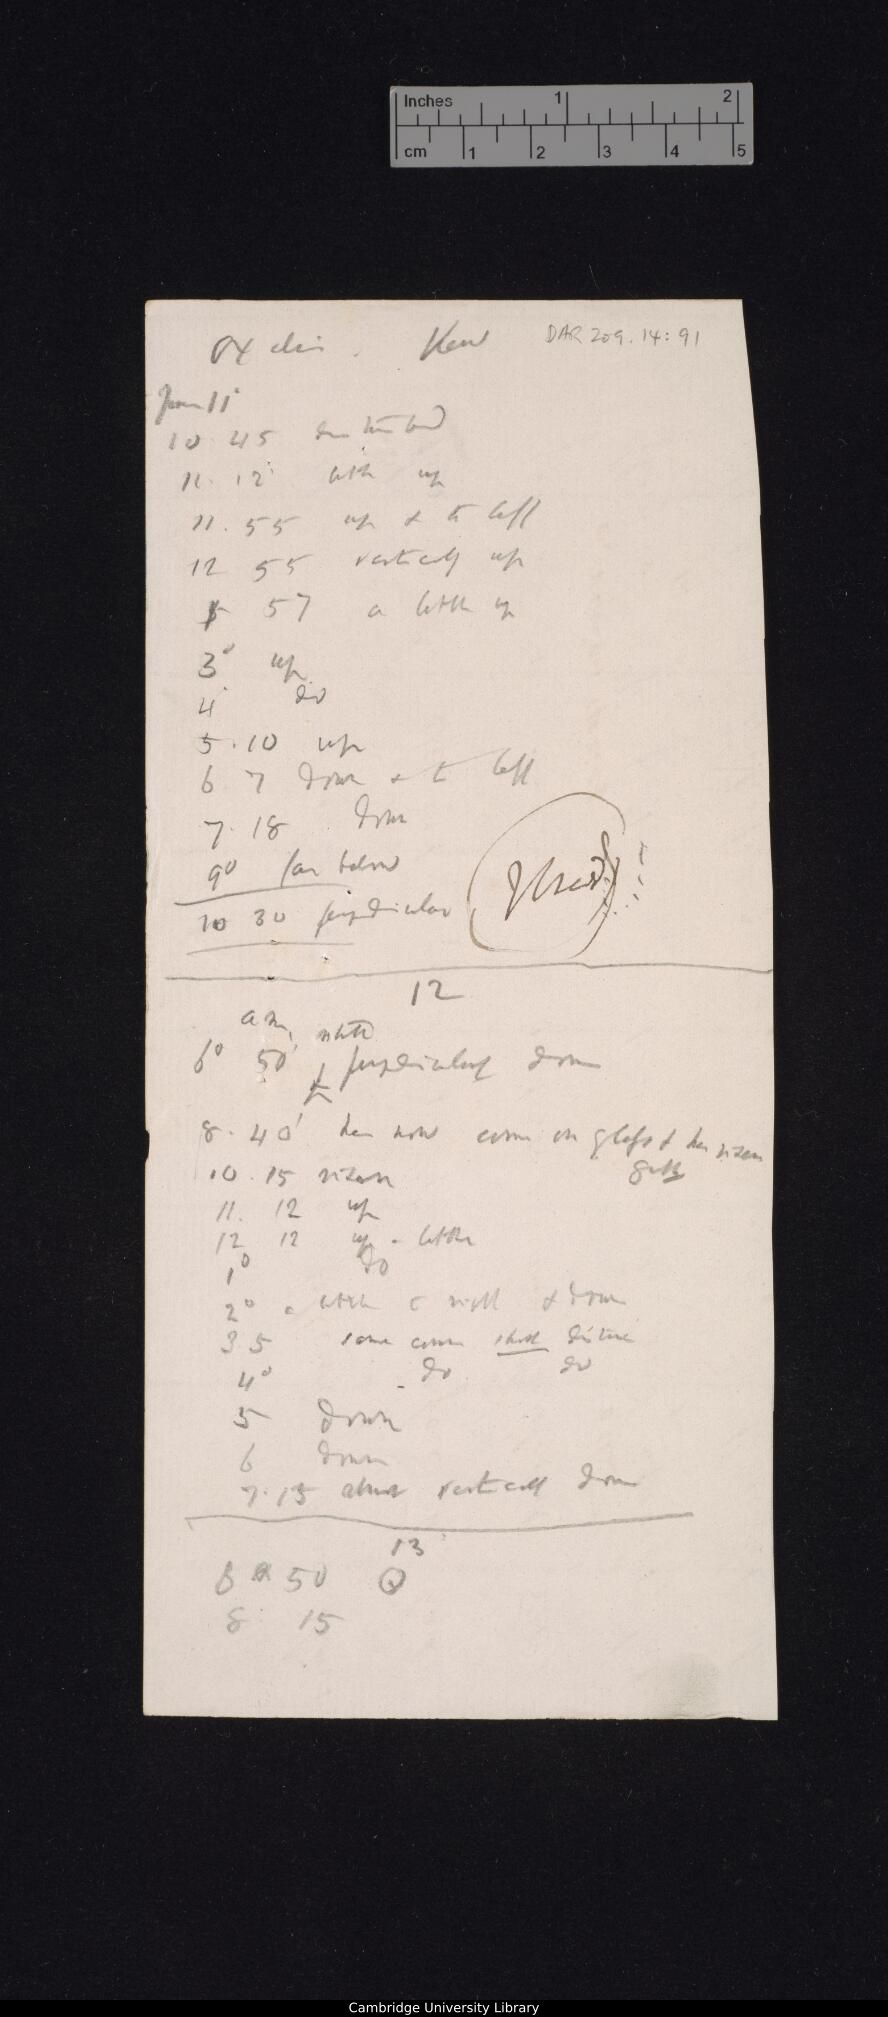 Inches 1 2
cm 1 2 3 4 5
Oxalis. Kew DAR 209.14:91
June 11°
10 45
11. 12 little up
11. 55 up & to left
12 55 vertically up
57 a little up
3° up
4 do
5. 10 up
6 7 down & to left
7. 18 down
9° far below
10 30 perpendicular
Used
12
a m.
6° 50' perpendicularly down
8. 40' has now come on glass & has risen greatly
10. 15 risen
11. 12 up
12 12 up a little
1° do
2° a little to right & down
3 5 same course short distance
4° do do
5 down
6 down
7. 15 almost vertically down
13
6 50
8 15
Cambridge University Library